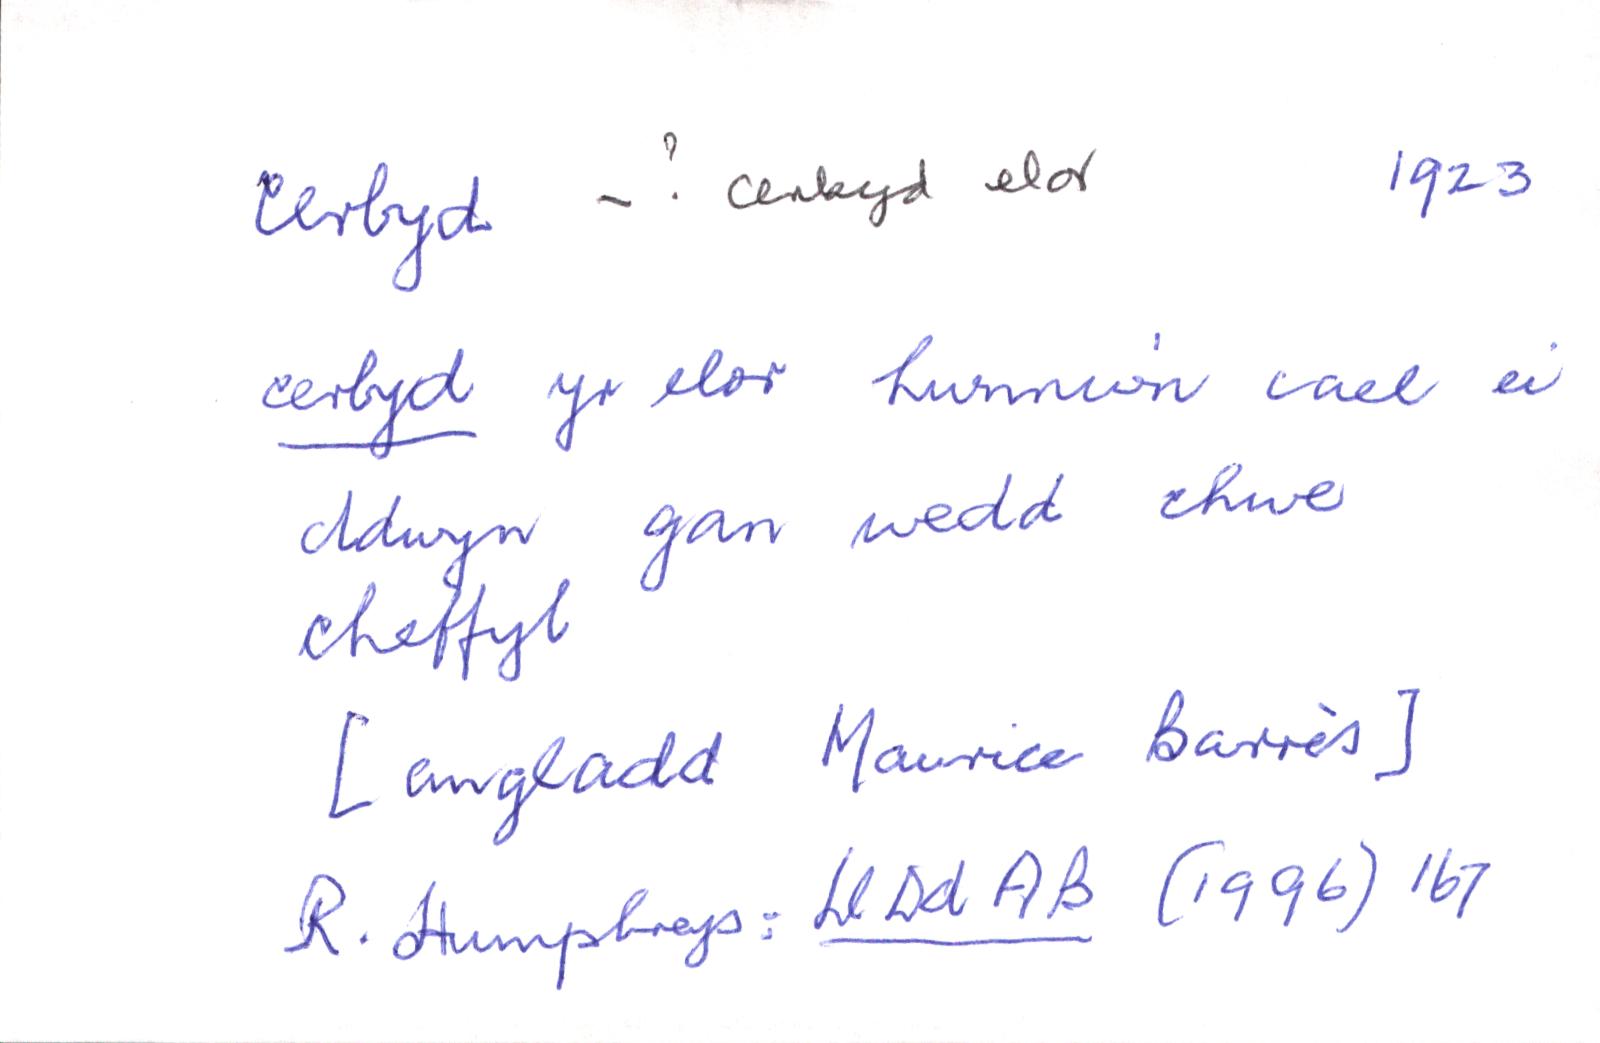 Cerbyd ~ ? cerbyd elor 1923
cerbyd yr elor hunnw'n cael ei
ddwyn gan wedd chwe
cheffyl
[angladd Maurice Barrès]
R. Humphreys: Ll Dd A B (1996) 167